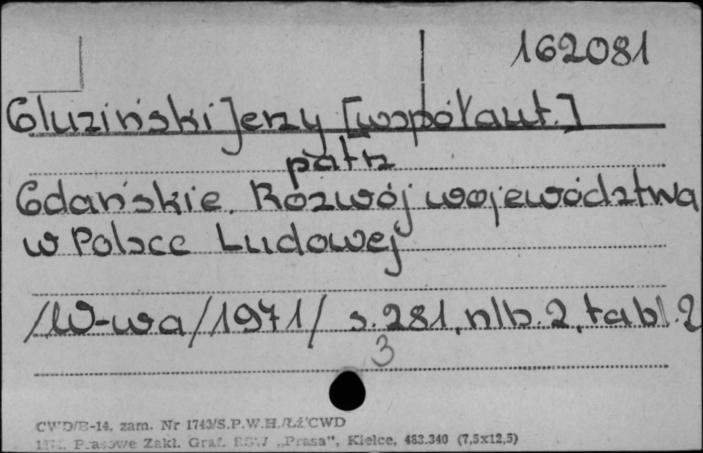 162081
Gluziński Jerzy [współaut.]
patrz
Gdańskie. Rozwój województwa
w Polsce Ludowej
/W-wa/1971/ s. 281, nlb. 2, tabl. 2
3
CWD/B-14. zam. Nr 1743/S.P.W.H./Łż/CWD
Prasowe Zakl. Graf. RSW „Prasa", Kielce, 483.340 (7,5x12,5)